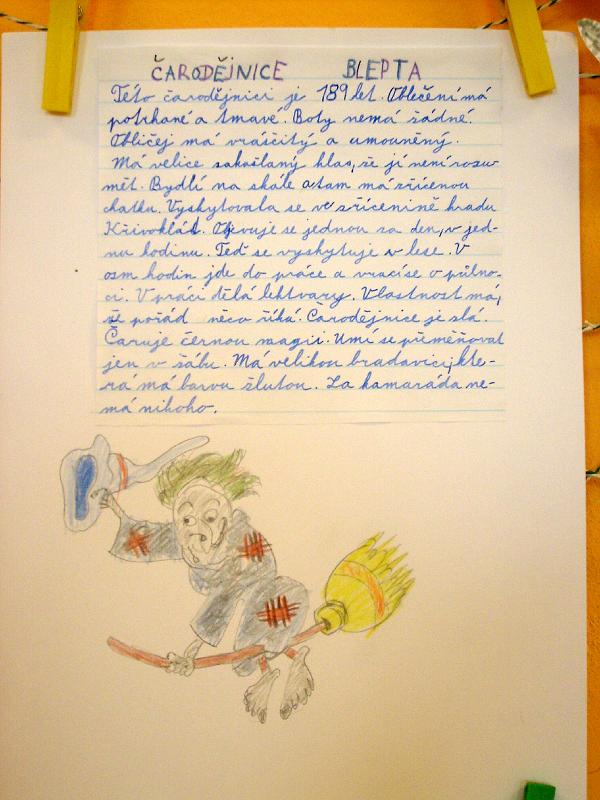 ČARODĚJNICE BLEPTA
Této čarodějnici je 189 let. Oblečení má
potrhané a tmavé. Boty nemá žádné.
Obličej má vráščitý a umouněný.
Má velice sakačlaný hlas, že jí není rozu-
mět. Bydlí na skále a tam má zřícenou
chatku. Vyskytovala se ve zřícenině hradu
Křivoklád. Objevuje se jednou za den, v jed-
nu hodinu. Teď se vyskytuje v lese. V
osm hodin jde do práce a vrací se o půlno-
ci. V práci dělá lektvary. Vlastnost má,
že pořád něco říká. Čarodějnice je zlá.
Čaruje černou magii. Umí se přeměňovat
jen v žábu. Má velikou bradavici, kte-
rá má barvu žlutou. Za kamaráda ne-
má nikoho.